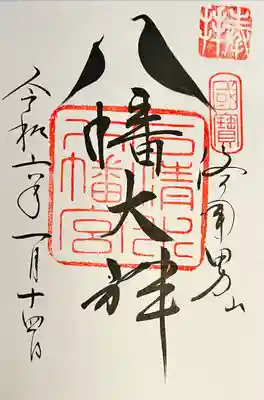 奉拝
國寶
官幣男山
八幡大神
石清水八幡宮
令和六年一月十四日